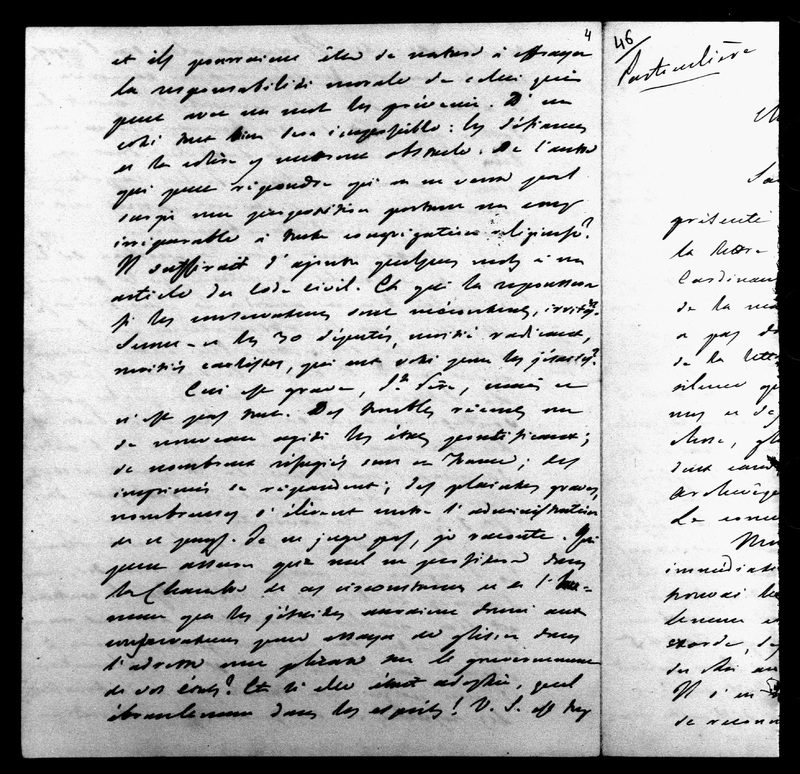 4
et ils pourraient être de nature à effrayer
la responsabilité morale de celui qui
peut avec un mot les prévenir. D'un
coté tout bien sera impossible: les défiances
et la colère y mettront obstacle. De l'autre
qui peut répondre qu'on ne verra pas
surgir une proposition portant un coup
irréparable à toute congrégation religieuse?
Il suffirait d'ajouter quelques mots à un
article du Code civil. Et qui la repoussera
si les conservateurs sont mécontents, irrités?
Seront-ce les 30 députés, moitié radicaux,
moitié carlistes, qui ont voté pour les jésuites?
Ceci est grave, St. Père, mais ce
n'est pas tout. Des troubles récents ont
de nouveau agité les états pontificaux;
de nombreux réfugiés sont en France; des
imprimés se répandent; des plaintes graves,
nombreuses s'élèvent contre l'administration
de ce pays. Je ne juge pas, je raconte. Qui
peut assurer que nul ne profitera dans
la Chambre de ces circonstances et de l'hu-
meur que les jésuites auraient donné aux
conservateurs pour essayer de glisser dans
l'adresse une phrase sur le gouvernement
de vos états? Et si elle était adoptée, quel
ébranlement dans les esprits! V. S. est trop
46
Particulière
présenté
la lettre
Cardinal
de la
a pas
de la lettre
silence
chose,
dont
Archevêque
Le
immédiat
pouvoir
exorde,
du Roi au
Il s'en
de